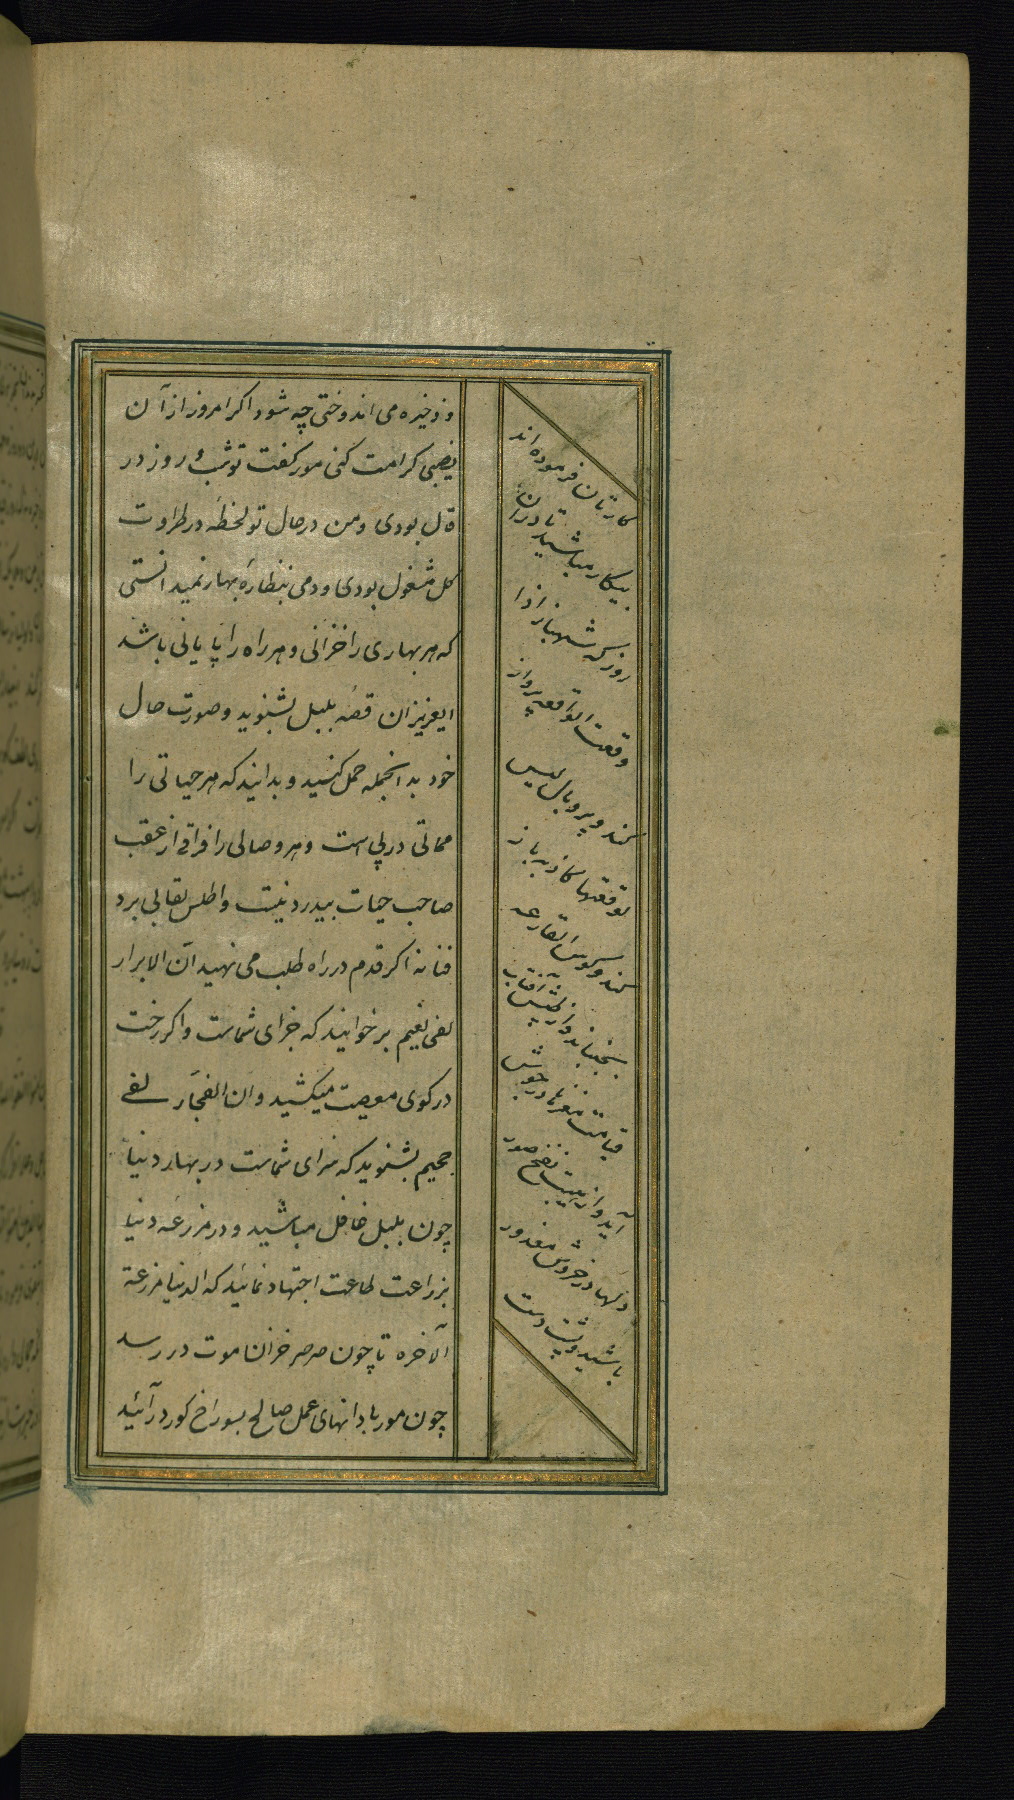 و ذخیره می اندوختی چه شود اکر امروز از آن
نصیبی کرامت کنی مور کفت تو شب و روز در
قال بودی و من در حال تو لحظه در طراوت
کل مشغول بودی و دمی بنظارۀ بهار نمیدانستی
که هر بهاری را خزانی و هر راه را پایانی باشد
ایعزیزان قصه بلبل بشنوید و صورت حال
خود بدانجمله حمل کنید و بدانید که هر حیاتی را
مماتی در پی است و هر وصالی را فراقی از عقب
صاحب حیات بیدرد نیست و اطلس بقا بی برد
فنا نه اکر قدم در راه طلب می نهید ان الابرار
لفی نعیم بر خوانید که جزای شماست و اکر رخت
در کوی معصیت میکشید و ان الفجار لفی
جحیم بشنوید که سزای شماست در بهار دنیا
چون بلبل غافل مباشید و در مزرعه دنیا
بزراعت طاعت اجتهاد نمائید که الدنیا مزرعة
الآخره تا چون صرصر خزان موت در رسد
چون مور با دانهای عمل صالح بسوراخ کور در آئید
کارتان فرموده اند
بیکار مباشید تا دران
روز که شهباز اذا
وقعت الواقعه پرواز
کند و پر و بال لیس
لوقعتها کاذبه باز
کند و کوس القارعه
بجنباند و از تپش آفتاب
قیامت مغزها در جوش
آید و از هیبت نفخ صور
دلها در خروش معذور
باشید و پشت دست